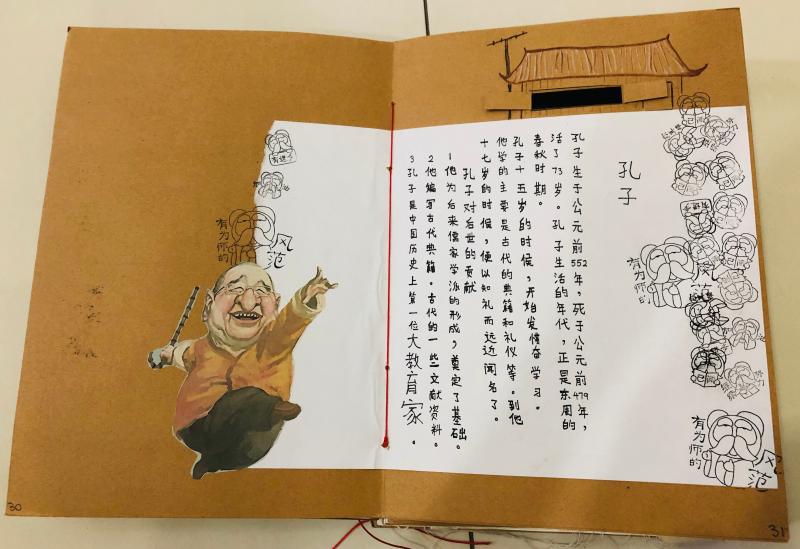 孔子
孔子生于公元前552年，死于公元前479年，
活了73岁。孔子生活的年代，正是东周的
春秋时期。
孔子十五岁的时候，开始发愤奋学习。
他学的主要是古代的典籍和礼仪等。到他
十七岁的时候，便以知礼而远近闻名了。
孔子对后世的贡献
1他为后来儒家学派的形成，奠定了基础。
2他编写古代典籍。古代的一些文献资料。
3孔子是中国历史上第一位大教育家。
有为师的
风范
有为师的
风范
有为师的
风范
30
31